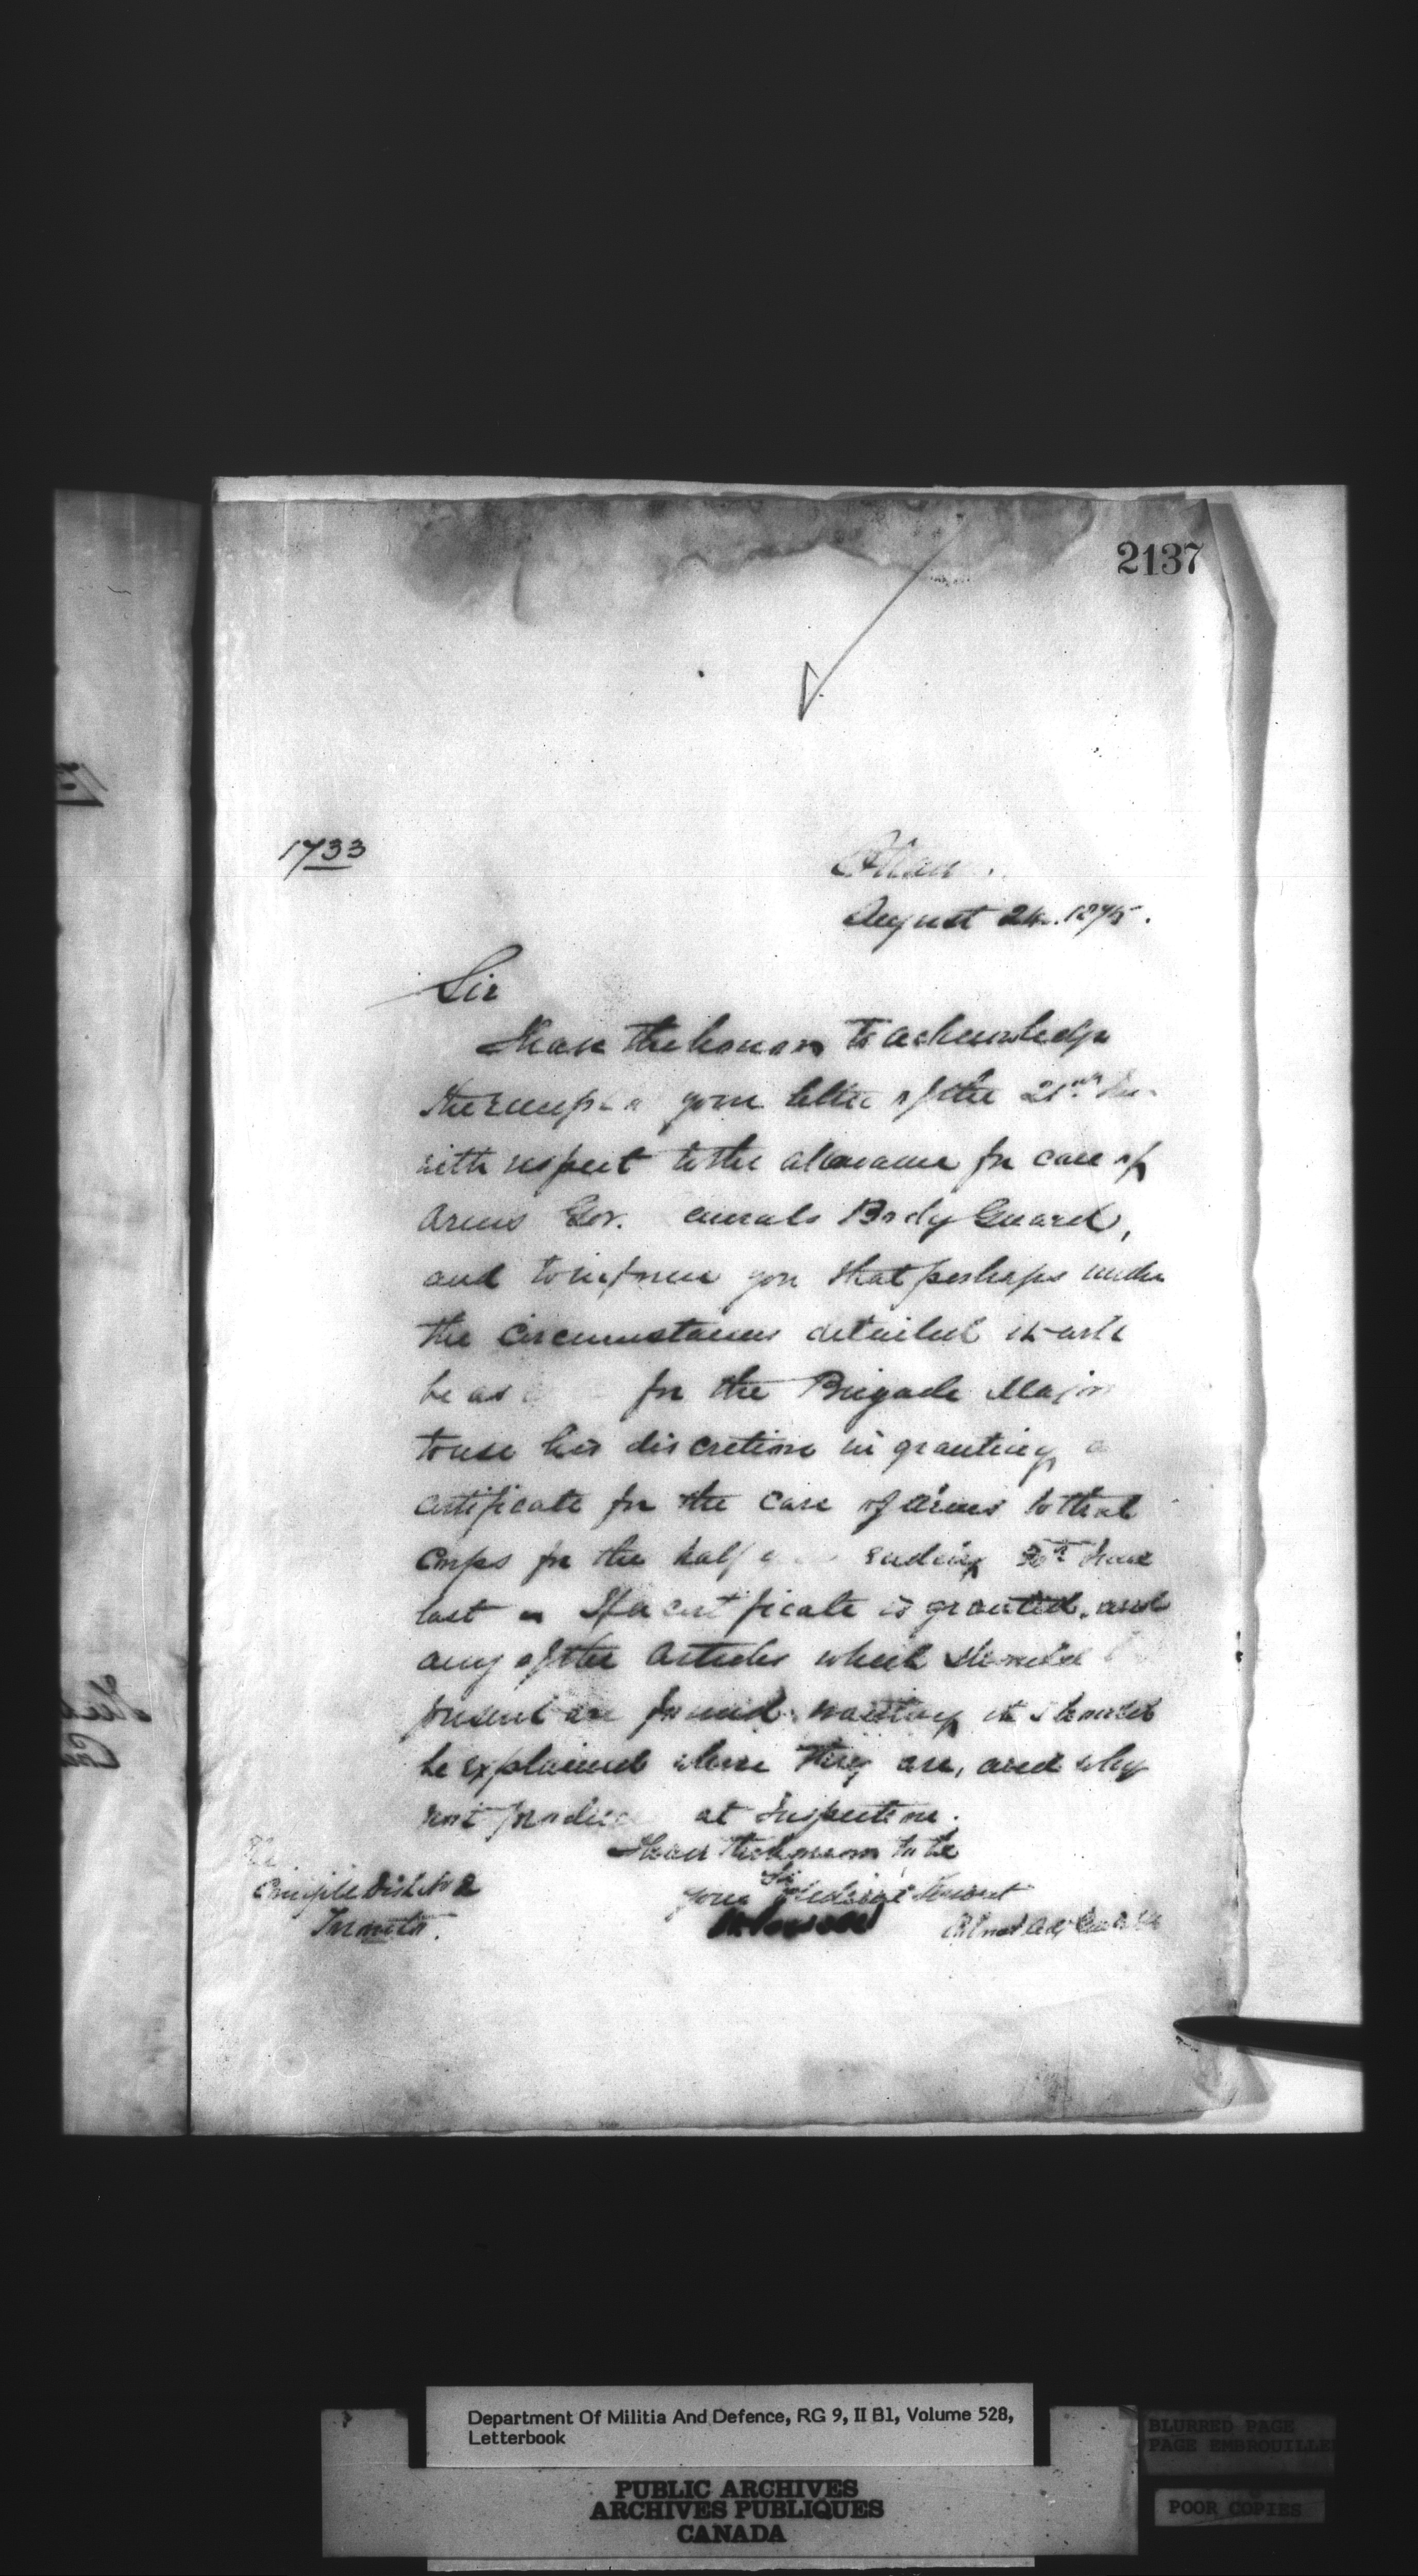 2137
1733
Ottawa
August 24. 1875.
Sir
I have the honor to acknowledge
the receipt your letter of the 21st
with respect to the allowance for care of
Arms Gov. enerals Body Guard,
and to inform you that perhaps under
the circumstances detailed it
be as for the Brigade Major
to use his discretion in granting a
certificate for the care of Arms to that
Corps for the half ending 30th June
last - If a certificate is granted, and
any of the articles which should
present are found wanting it should
be explained where they are, and why
not produce at Inspection.
I have the honor to be
Sir
Your Obedient Servant
Powell
Dist No 2
Toronto.
Department Of Militia And Defence, RG 9, II B1, Volume 528,
Letterbook
PUBLIC ARCHIVES
ARCHIVES PUBLIQUES
CANADA
BLURRED PAGE
PAGE EMBROUILLE
POOR COPIES